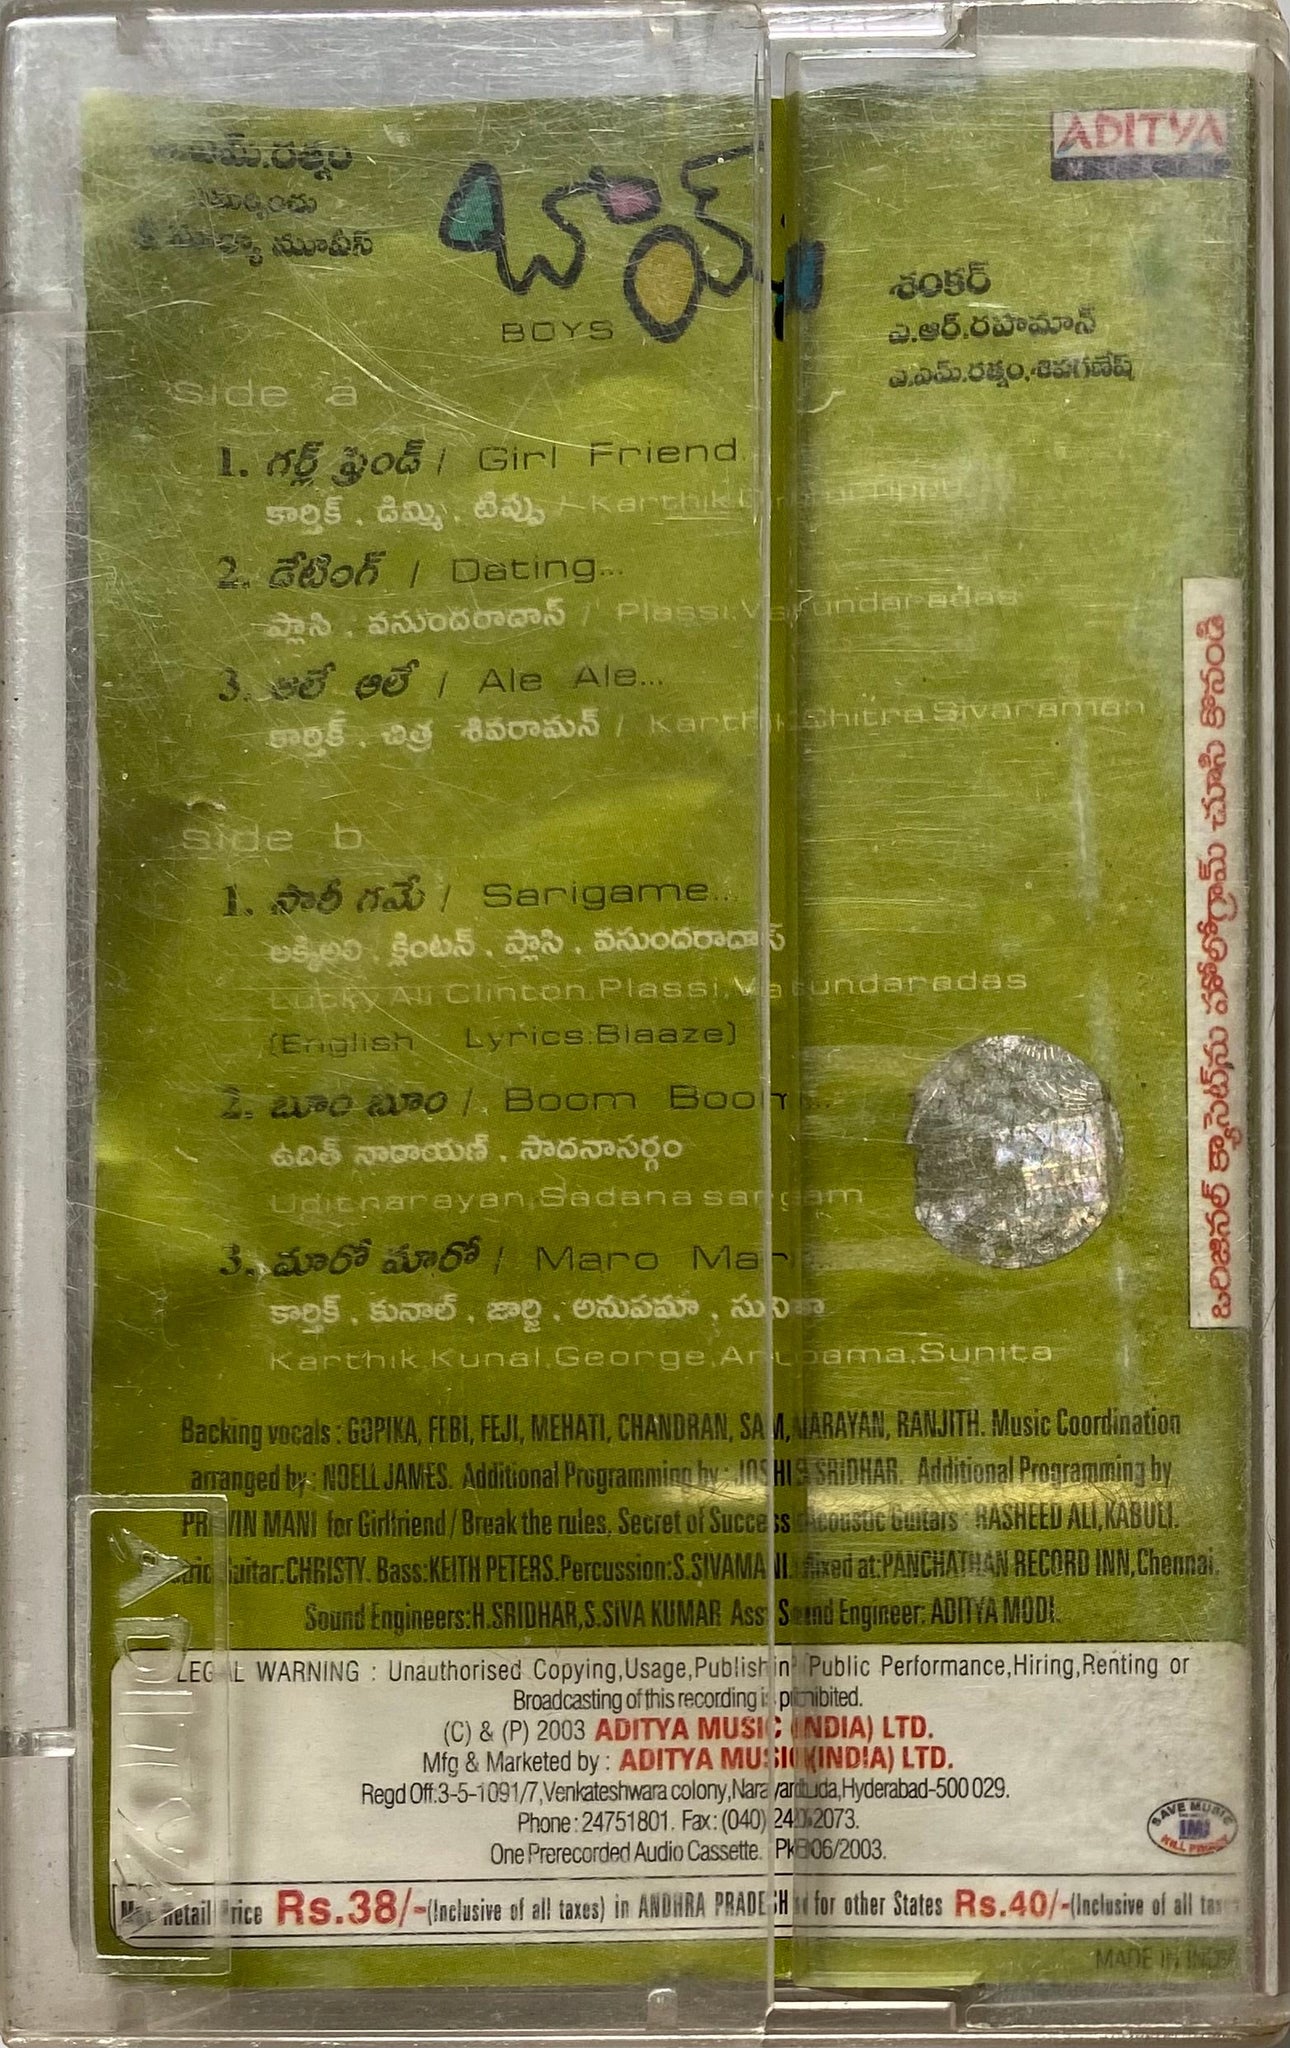 ఎమ్.రత్నం
మూవీస్
బాయ్స్
BOYS
ADITYA
శంకర్
ఎ.ఆర్.రహమాన్
ఎ.ఎమ్.రత్నం,శివగణేష్
Side a
1. గర్ల్ ఫ్రెండ్ / Girl Friend.
కార్తిక్ , డిమ్మి , టిప్పు / Karthik
2. డేటింగ్ / Dating...
ప్లాసి , వసుందరాదాస్ / Plassi,Vasundaradas
3. ఆలే ఆలే / Ale Ale...
కార్తిక్ , చిత్ర శివరామన్ / Karthik,Chitra Sivaraman
Side b
1. సారీ గమే / Sarigame...
లక్కిఅలి , క్లింటన్ , ప్లాసి , వసుందరాదాస్
Lucky Ali,Clinton,Plassi,Vasundaradas
(English Lyrics:Blaaze)
2. బూం బూం / Boom Boom...
ఉదిత్ నారాయణ్ , సాదనాసర్గం
Uditnarayan,Sadana sargam
3. మారో మారో / Maro Maro
కార్తిక్ , కునాల్ , జార్జి , అనుపమా , సునితా
Karthik,Kunal,George,Anupama,Sunita
Backing vocals : GOPIKA, FEBI, FEJI, MEHATI, CHANDRAN, SAM, NARAYAN, RANJITH. Music Coordination
arranged by : NOELL JAMES. Additional Programming by : JOSHI & SRIDHAR. Additional Programming by
PRAVIN MANI for Girlfriend / Break the rules, Secret of Success Acoustic Guitars : RASHEED ALI,KABULI.
Guitar:CHRISTY. Bass:KEITH PETERS.Percussion:S.SIVAMANI. Mixed at:PANCHATHAN RECORD INN,Chennai.
Sound Engineers:H.SRIDHAR,S.SIVA KUMAR Asst Sound Engineer: ADITYA MODI.
LEGAL WARNING : Unauthorised Copying,Usage,Publishing Public Performance,Hiring,Renting or
Broadcasting of this recording is prohibited.
(C) & (P) 2003 ADITYA MUSIC (INDIA) LTD.
Mfg & Marketed by : ADITYA MUSIC (INDIA) LTD.
Regd Off:3-5-1091/7,Venkateshwara colony,Narayanguda,Hyderabad-500 029.
Phone : 24751801. Fax : (040)
One Prerecorded Audio Cassette. 06/2003.
SAVE MUSIC
IMI
KILL PIRACY
Max Retail Price Rs.38/-(Inclusive of all taxes) in ANDHRA PRADESH for other States Rs.40/-(Inclusive of all taxes
MADE IN INDIA
ఒరిజినల్ క్యాసెట్‌ను హాలోగ్రామ్ చూసి కొనండి
ADITYA